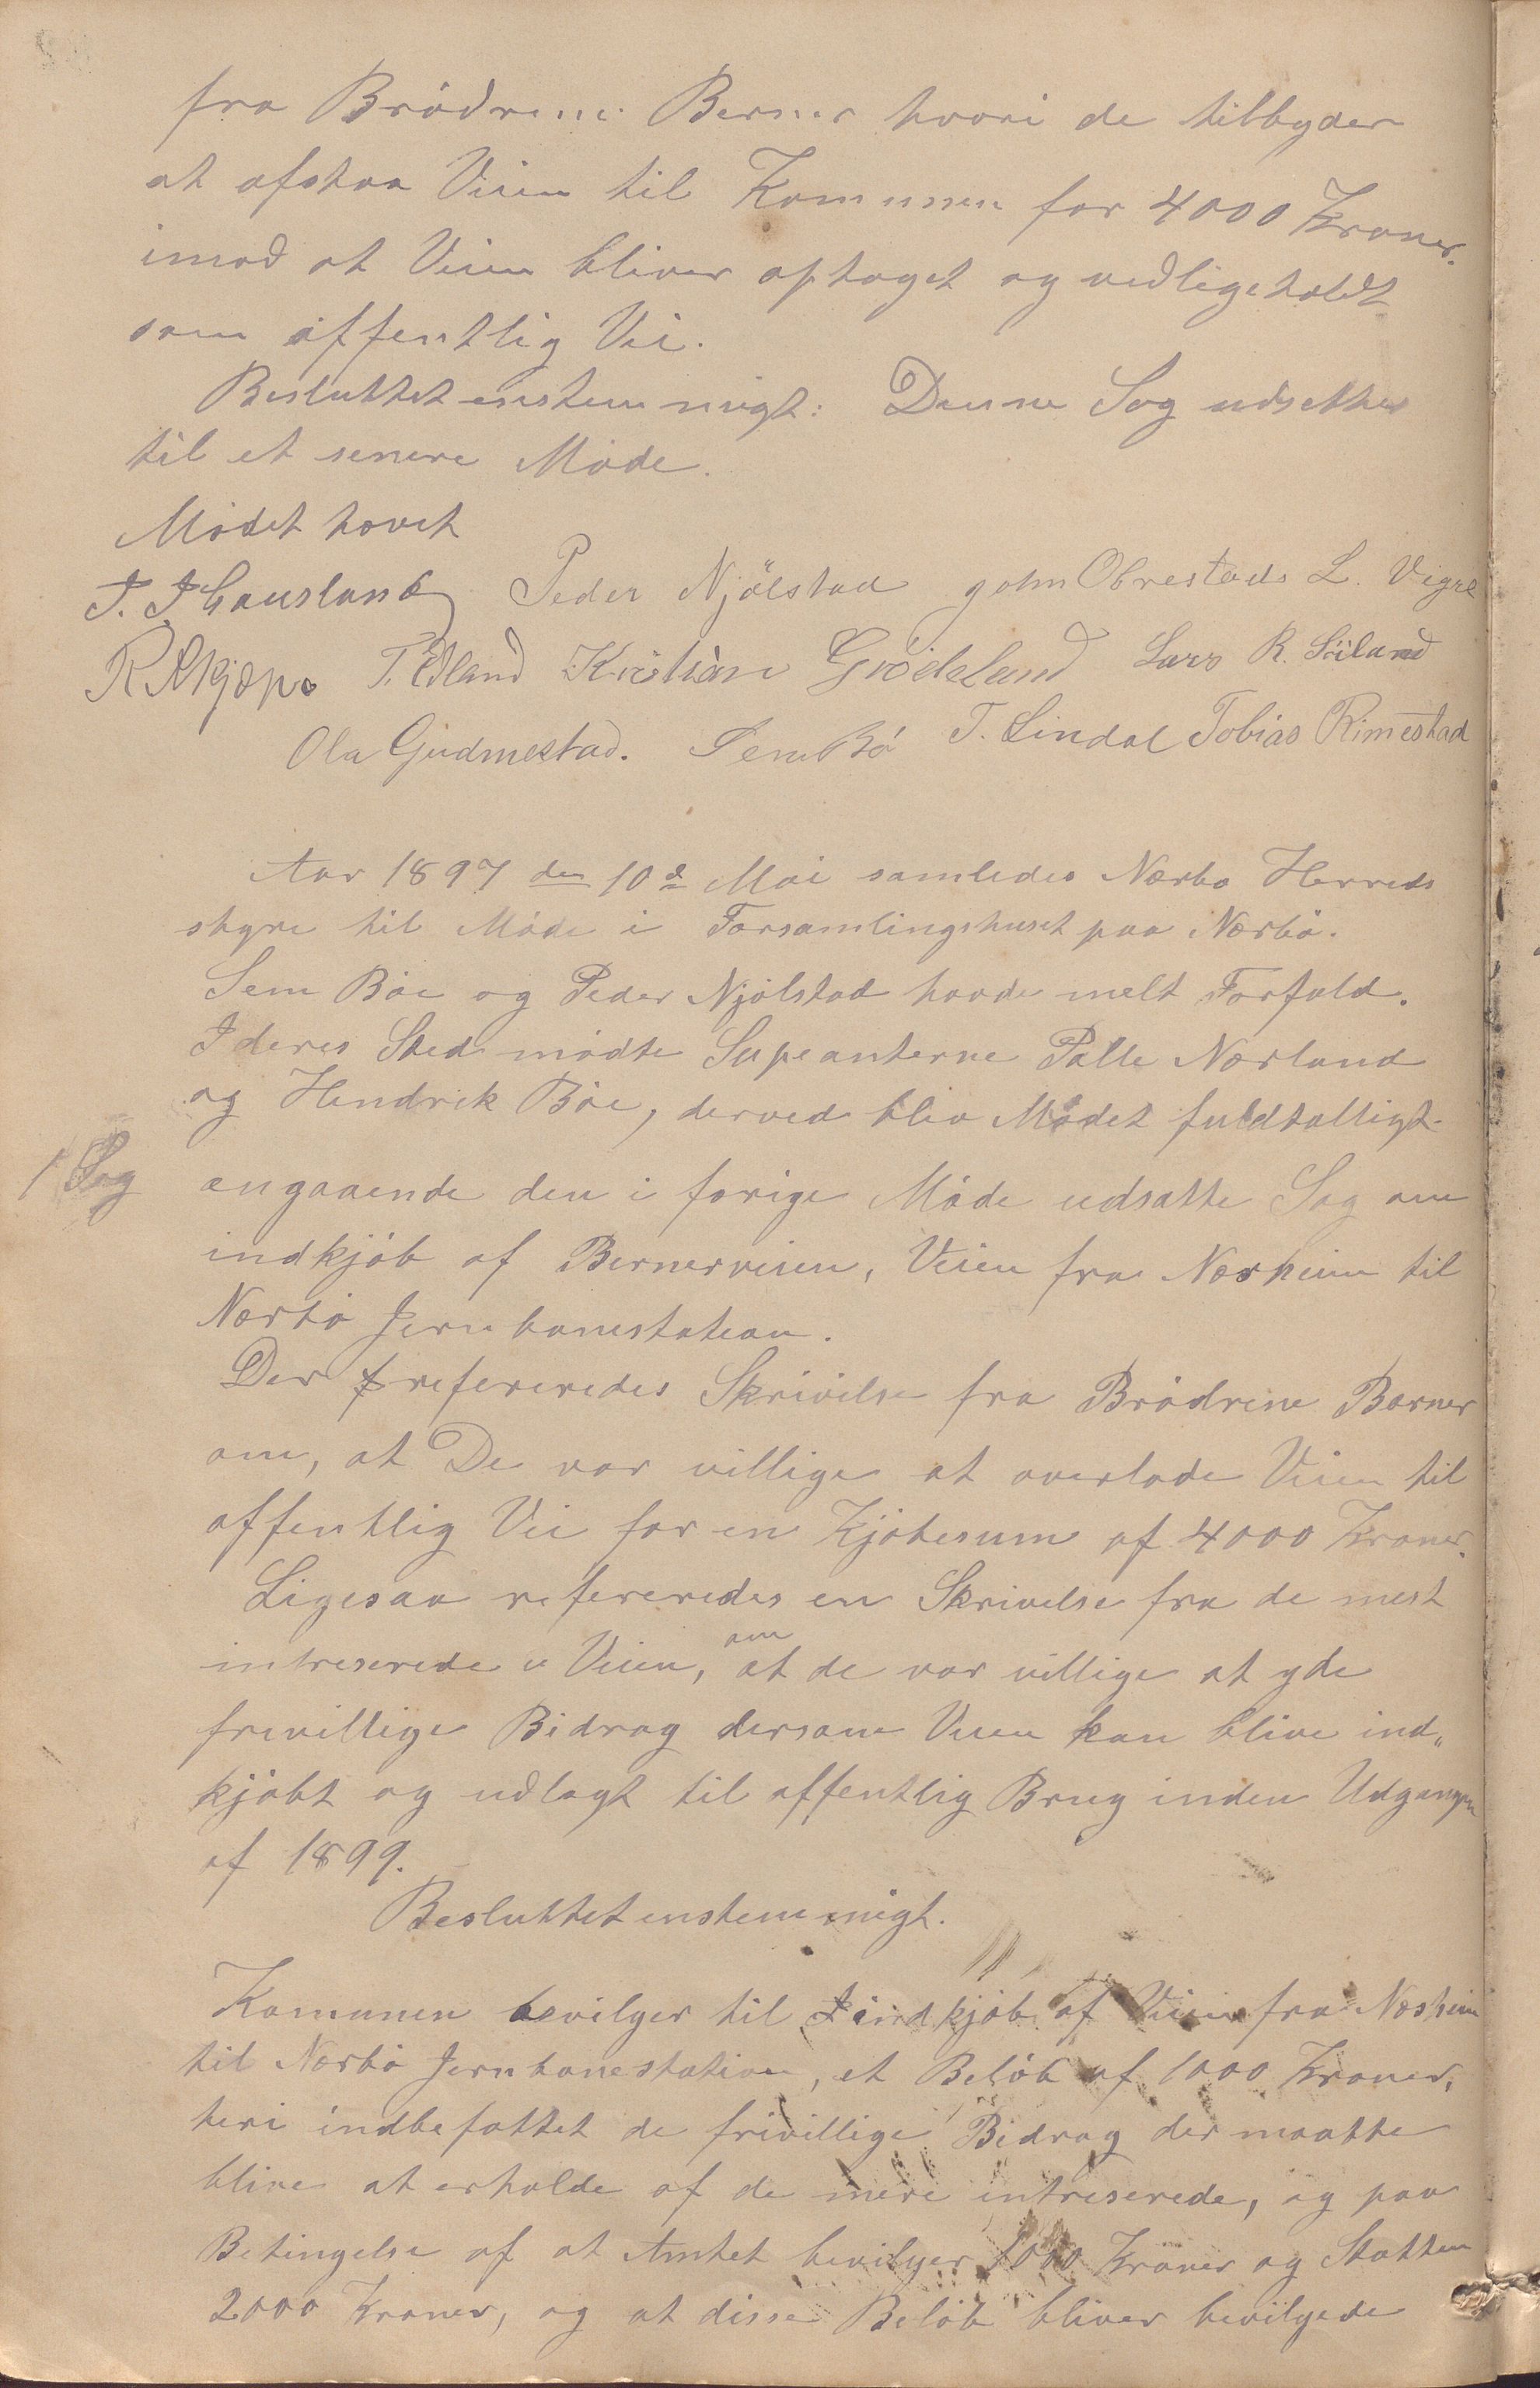 fra Brödrene Berner hvori de tilbyder
at afstaa Veien til Komunen for 4000 Kroner.
imod at Veien bliver optaget og vedligeholdt
som offentlig Vei.
Besluttet enstemmigt: Denne Sag udsættes
til et senere Möde.
Mödet hævet
J. J Gausland Peder Njölstad John Obrestads L. Vigre
R Skjæpe T. Edland Kristian Grödeland Lars R. Siiland
Ola Gudmestad. Sem Bö T. Lindal Tobias Rimestad
Aar 1897 den 10de Mai samledes Nærbø Herreds
styre til Möde i Forsamlingshuset paa Nærbö.
Sem Böe og Peder Njölstad havde melt Forfald.
I deres Sted mödte Supeanterne Palle Nærland
og Hendrik Böe, derved blev Mödet fuldtalligt.
1 Sag angaaende den i forige Möde udsatte Sag om
indkjöb af Bernerveien, Veien fra Næsheim til
Nærbö Jernbanestation.
Der refereredes Skrivelse fra Brödrene Berner
om, at De var villige at overlade Veien til
offentlig Vei for en Kjöbesum af 4000 Kroner.
Ligesaa refereredes en Skrivelse fra de mest
intreserede i Veien, om at de var villige at yde
frivillige Bidrag dersom Veien kan blive ind„
kjöbt og udlagt til offentlig Brug inden Udgangen
af 1899.
Besluttet enstemmigt.
Komunen bevilger til indkjöb af Veien fra Næsheim
til Nærbö Jernbanestation, et Belöb af 1000 Kroner,
heri indbefattet de frivillige Bidrag der maatte
blive at erholde af de mere intreserede, og paa
Betingelse af at Amtet bevilger 1000 Kroner og Statten
2000 Kroner, og at disse Belöb bliver bevilgede